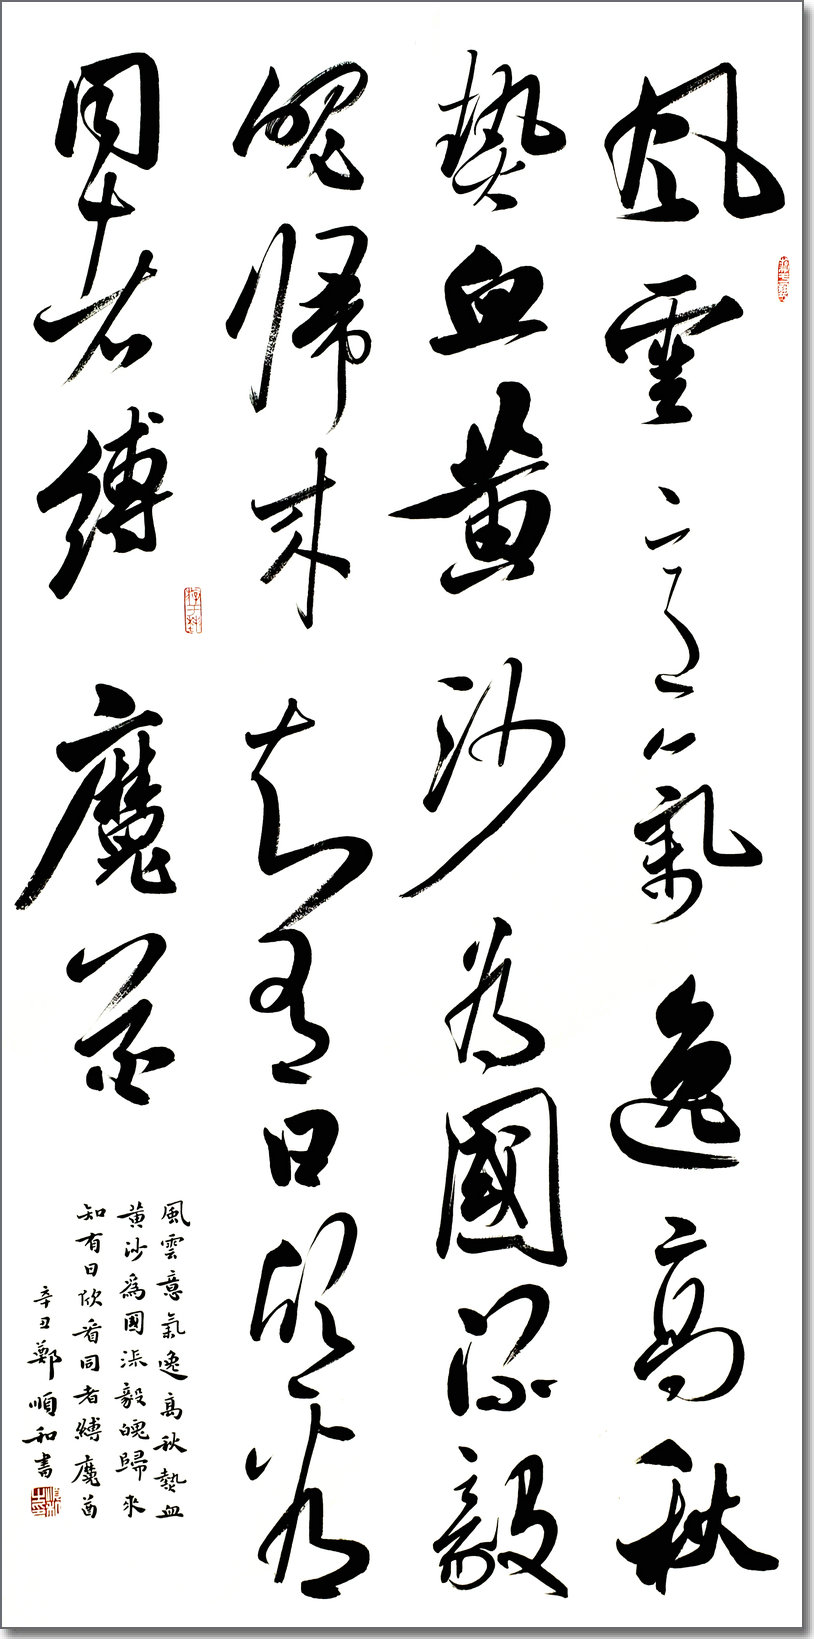 風雲意氣逸高秋
熱血黄沙為國流毅
魄歸來知有日欣看
同者縛魔酋
風雲意氣逸高秋熱血
黄沙爲國流毅魄歸來
知有日欣看同者縛魔酋
辛丑鄭順和書